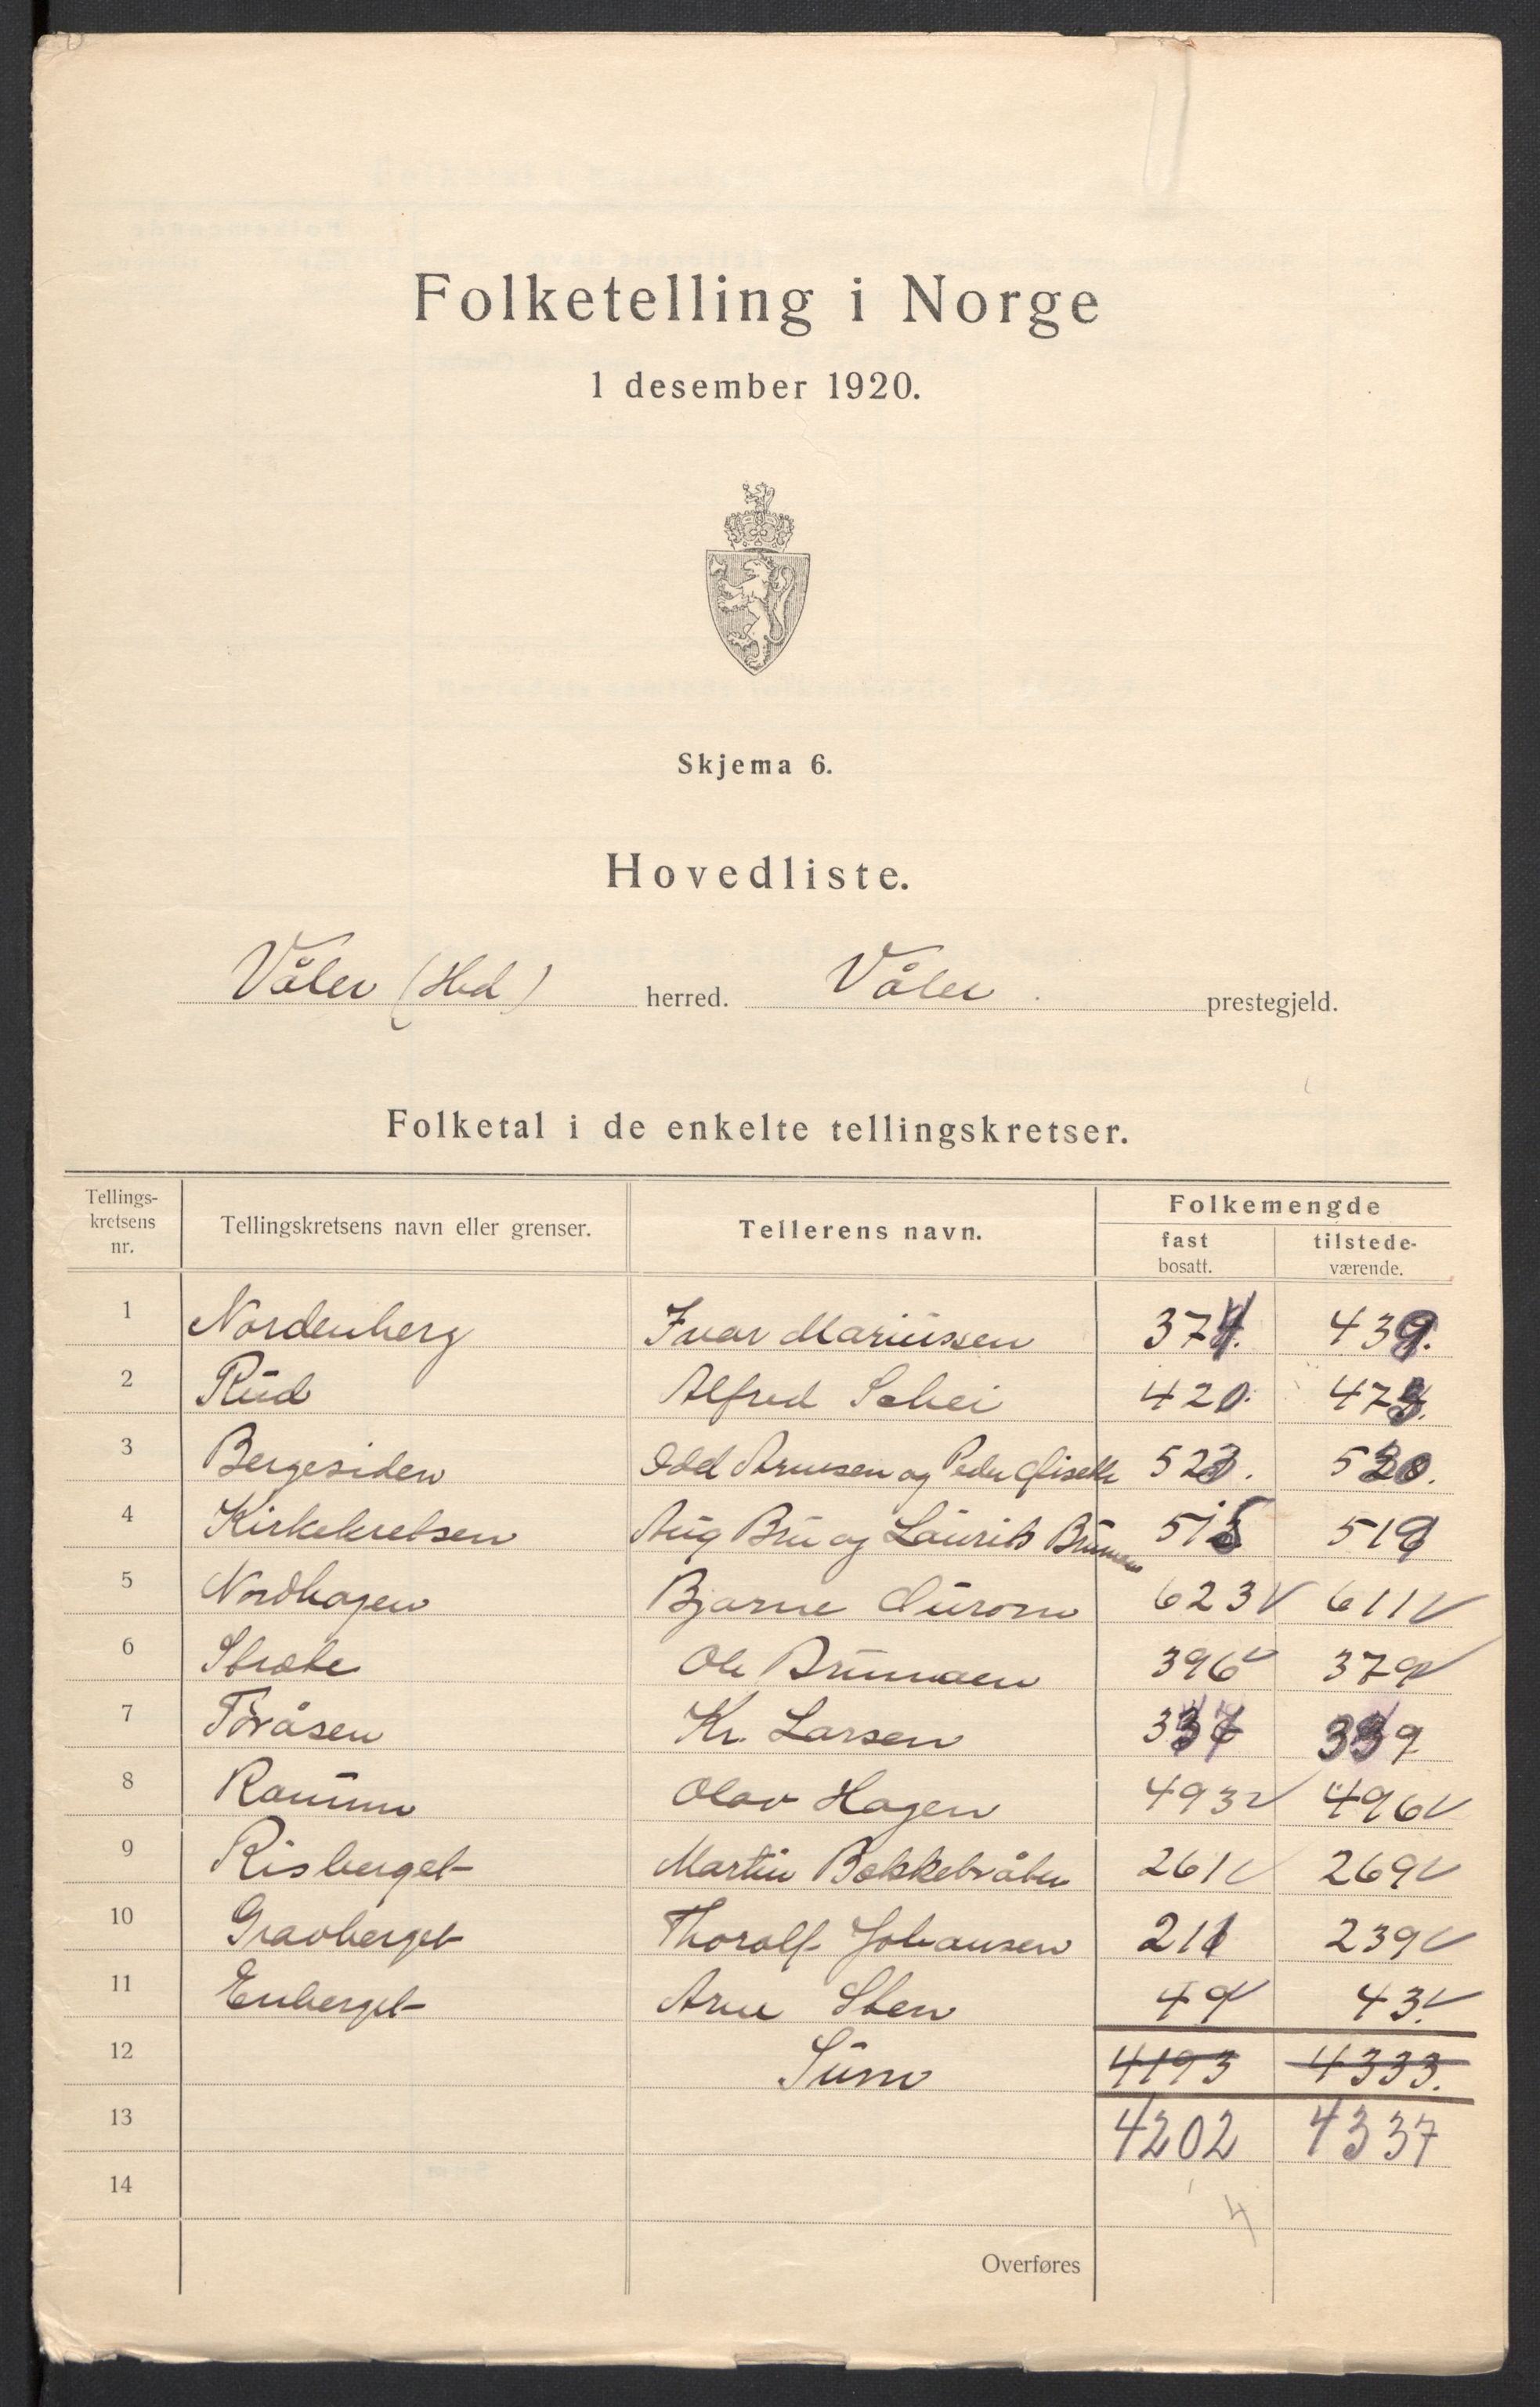 Folketelling i Norge
1 desember 1920.
Skjema 6.
Hovedliste.
Våler (Hed) herred. Våler. prestegjeld.
Folketal i de enkelte tellingskretser.
Tellings-kretsens nr. Tellingskretsens navn eller grenser. Tellerens navn. Folkemengde
fast bosatt. tilstede-værende.
1 Nordenberg Ivar Mariussen 374. 439.
2 Rud Alfred Schei 420. 473.
3 Bergesiden Odd Arnesen og Peder 523. 520.
4 Kirkekretsen Aug Bru og Laurits 515 519
5 Nordhagen Bjarne 623 611
6 Stræte Ole 396 379
7 Toråsen Kr. Larsen 337 339
8 Olav Hagen 493 496
9 Risberget Martin 261 269
10 Gravberget Thoralf Johansen 211 239
11 Enberget Arne Sten 49 43.
12 Sum 4193 4333.
13 4202 4337
14 4
Overføres